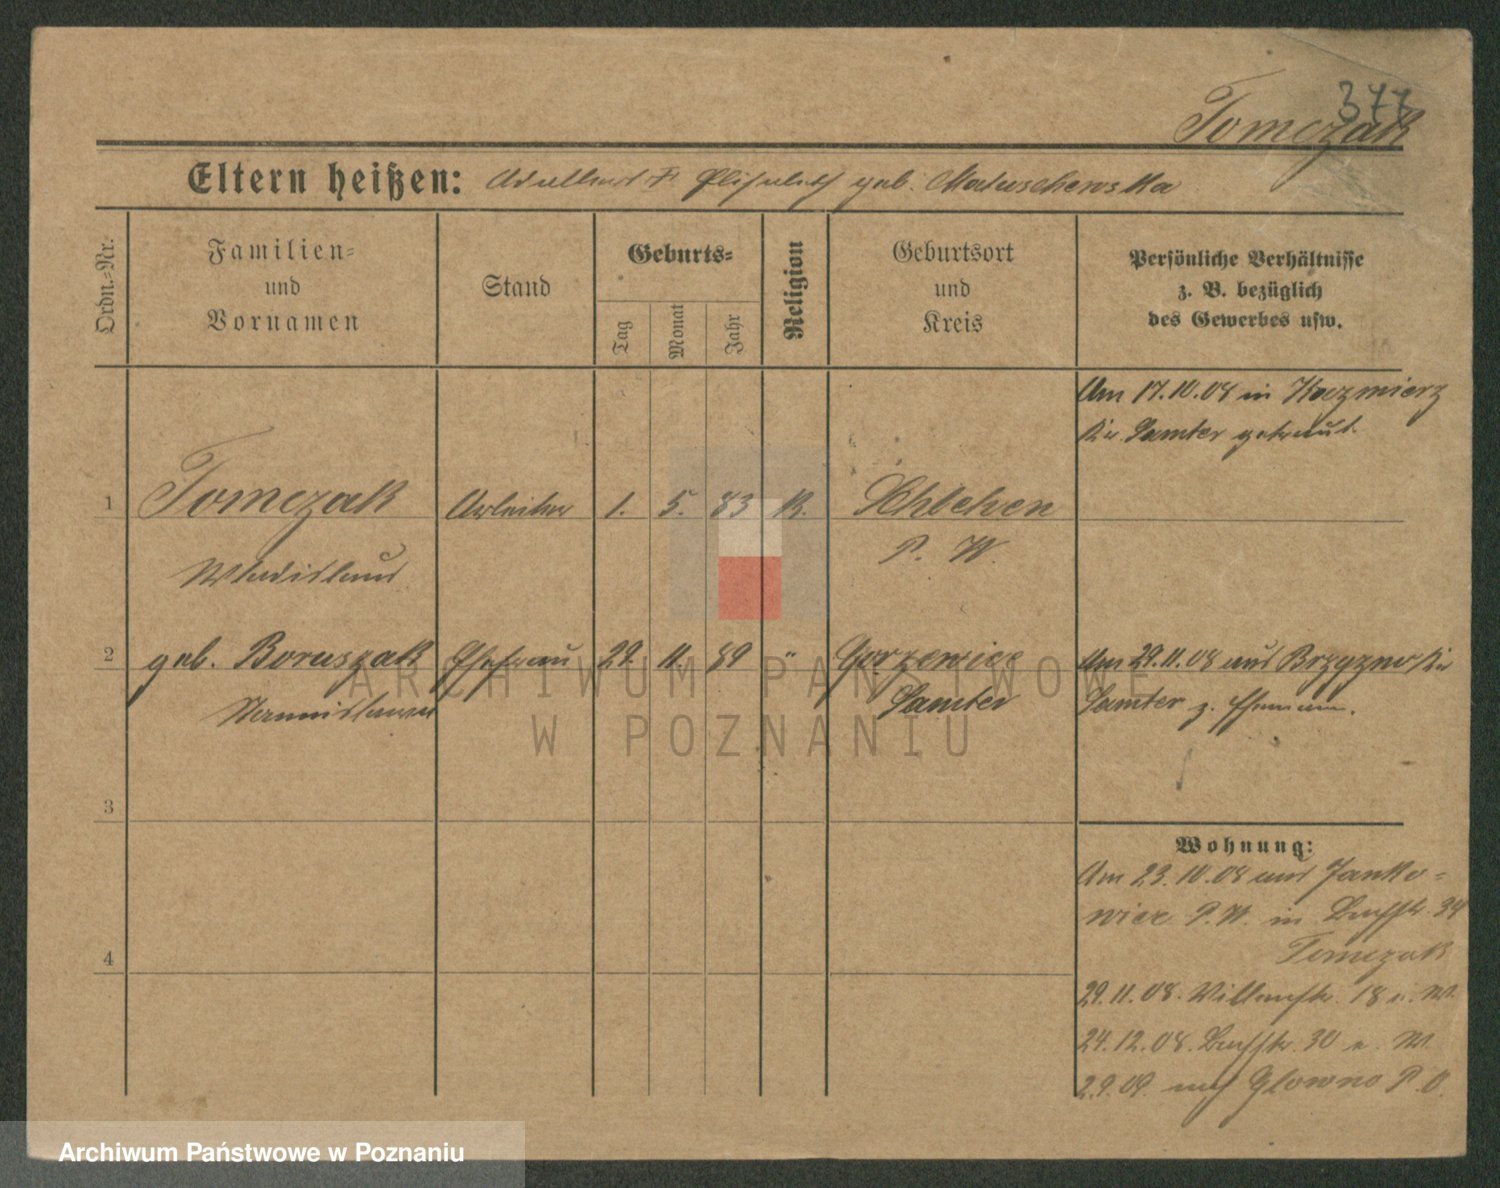 377
Tomczak
Eltern heißen: Adalbert + Elisabeth geb. Matuschewska
Ordn.-Nr.
Familien-
und
Vornamen
Stand
Geburts-
Tag
Monat
Jahr
Religion
Geburtsort
und
Kreis
Persönliche Verhältnisse
z. B. bezüglich
des Gewerbes usw.
Am 17.10.08 in Kazmierz
Kr. Samter getraut.
1 Tomczak Arbeiter 1. 5. 83 K.
Wladislaus
P. W.
2 geb. Boruszak Ehefrau 29. 11. 89 "
Stanislawa
Samter
Am 29.11.08 aus Kr.
Samter z. Ehemann.
3
4
Wohnung:
Am 23.10.08 aus Janko-
wice P. W. in Bachstr. 34
Tomczak
29.11.08. 18 b. W.
24.12.08. Bachstr. 30 b. W.
2.9.09. nach Glowno P. O.
ARCHIWUM PAŃSTWOWE
W POZNANIU
Archiwum Państwowe w Poznaniu